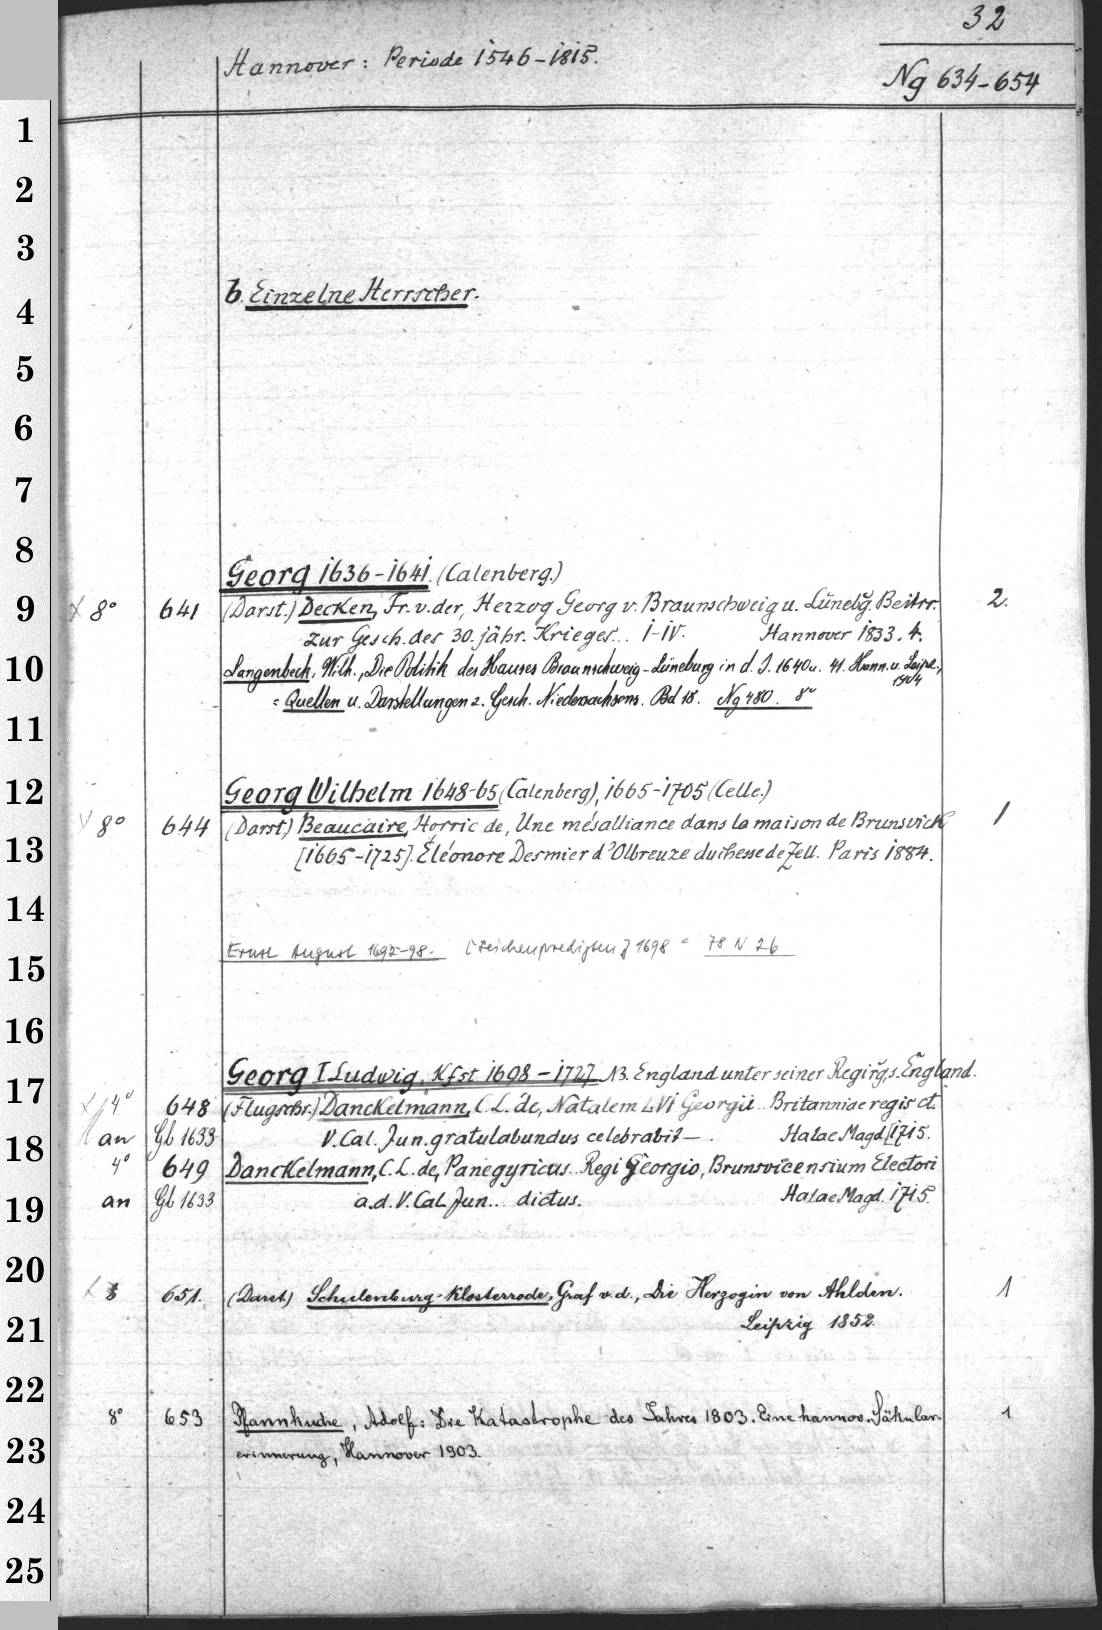 32
Hannover: Periode 1546-1815.
Ng 634-654
1
2
3
b. Einzelne Herrscher.
4
5
6
7
8
Georg 1636-1641. (Calenberg.)
9 x 8° 641 (Darst.) Decken, Fr. v. der, Herzog Georg v. Braunschweig u. Lünebg. Beitrr. 2.
zur Gesch. des 30. jähr. Krieges... I-IV. Hannover 1833. 4.
10 Langenbeck, Wilh., Die Politik des Hauses Braunschweig-Lüneburg in d. J. 1640 u. 41. Hann. u. Leipz., 1904
= Quellen u. Darstellungen z. Gesch. Niedersachsens. Bd 18. Ng 480. 8°
11
12 Georg Wilhelm 1648-65 (Calenberg), 1665-1705 (Celle.)
8° 644 (Darst) Beaucaire, Horric de, Une mésalliance dans la maison de Brunsvick 1
13 [1665-1725]. Éléonore Desmier d'Olbreuze duchesse de Zell. Paris 1884.
14
Ernst August 1692-98. [Leichenpredigten] 1698 = 78 N 26
15
16
17 Georg I Ludwig, Kfst 1698-1727 NB. England unter seiner Regirg, s. England.
4° 648 (Flugschr.) Danckelmann, C. L. de, Natalem LVI Georgii.. Britanniae regis ct.
18 an Gb 1633 V. Cal. Jun. gratulabundus celebrabit—. Halae Magd. [1715.
4° 649 Danckelmann, C. L. de, Panegyricus.. Regi Georgio, Brunsvicensium Electori
19 an Gb 1633 a. d. V. Cal. Jun... dictus. Halae Magd. 1715.
20
651. (Darst) Schulenburg-Klosterrode, Graf v. d., Die Herzogin von Ahlden. 1
21 Leipzig 1852.
22
8° 653 Pfannkuche, Adolf: Die Katastrophe des Jahres 1803. Eine hannov. Säkular- 1
23 erinnerung, Hannover 1903.
24
25